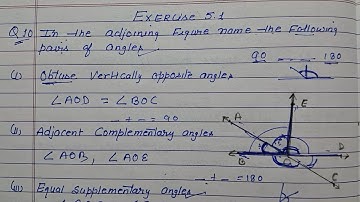 EXERCISE 5.1
Q.10 In the adjoining figure name the following
pairs of angles.
90 _ _ _ 180
(i) Obtuse Vertically opposite angles
∠AOD = ∠BOC
_ + _ = 90
(ii) Adjacent Complementary angles
∠AOB, ∠AOE
(iii) Equal supplementary angles
_ + _ = 180
A
E
B
D
C